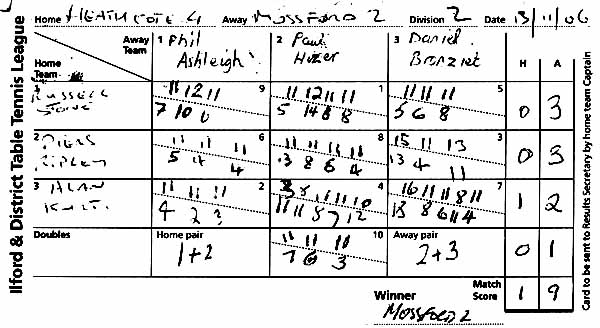 Ilford & District Table Tennis League
Home HEATHCOTE 4 Away MOSSFORD 2 Division 2 Date 13/11/06
Away Team 1 Phil Ashleigh 2 Paul Huzer 3 Daniel Home Team H A
1 RUSSELL
11 12 11 9 11 12 11 11 1 11 11 11 5
7 10 5 14 8 8 5 6 8 0 3
2 PIERS RIPLEY
11 11 11 6 11 11 11 11 8 15 11 13 3
5 4 4 13 8 6 4 13 4 11 0 3
3 ALAN
11 11 11 2 11 11 10 4 16 11 11 8 11 7
4 2 3 11 11 8 7 12 13 8 6 11 4 1 2
Doubles Home pair 1+2 11 11 11 10 Away pair 2+3 0 1
7 6 3
Winner MOSSFORD 2 Match Score 1 9
Card to be sent to Results Secretary by home team Captain